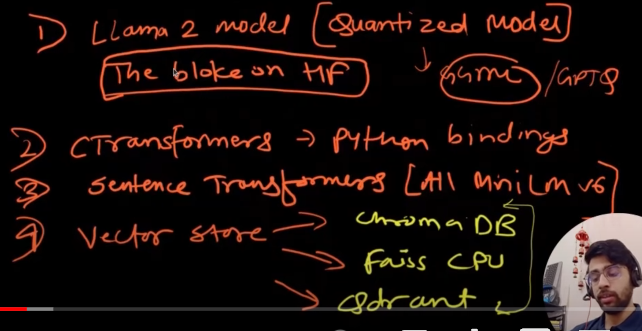 1) Llama 2 model [Quantized Model]
The bloke on HF
GGML / GPTQ
2) CTransformers → Python bindings
3) Sentence Transformers [All MiniLM v6]
4) Vector store → Chroma DB
→ Faiss CPU
→ Qdrant